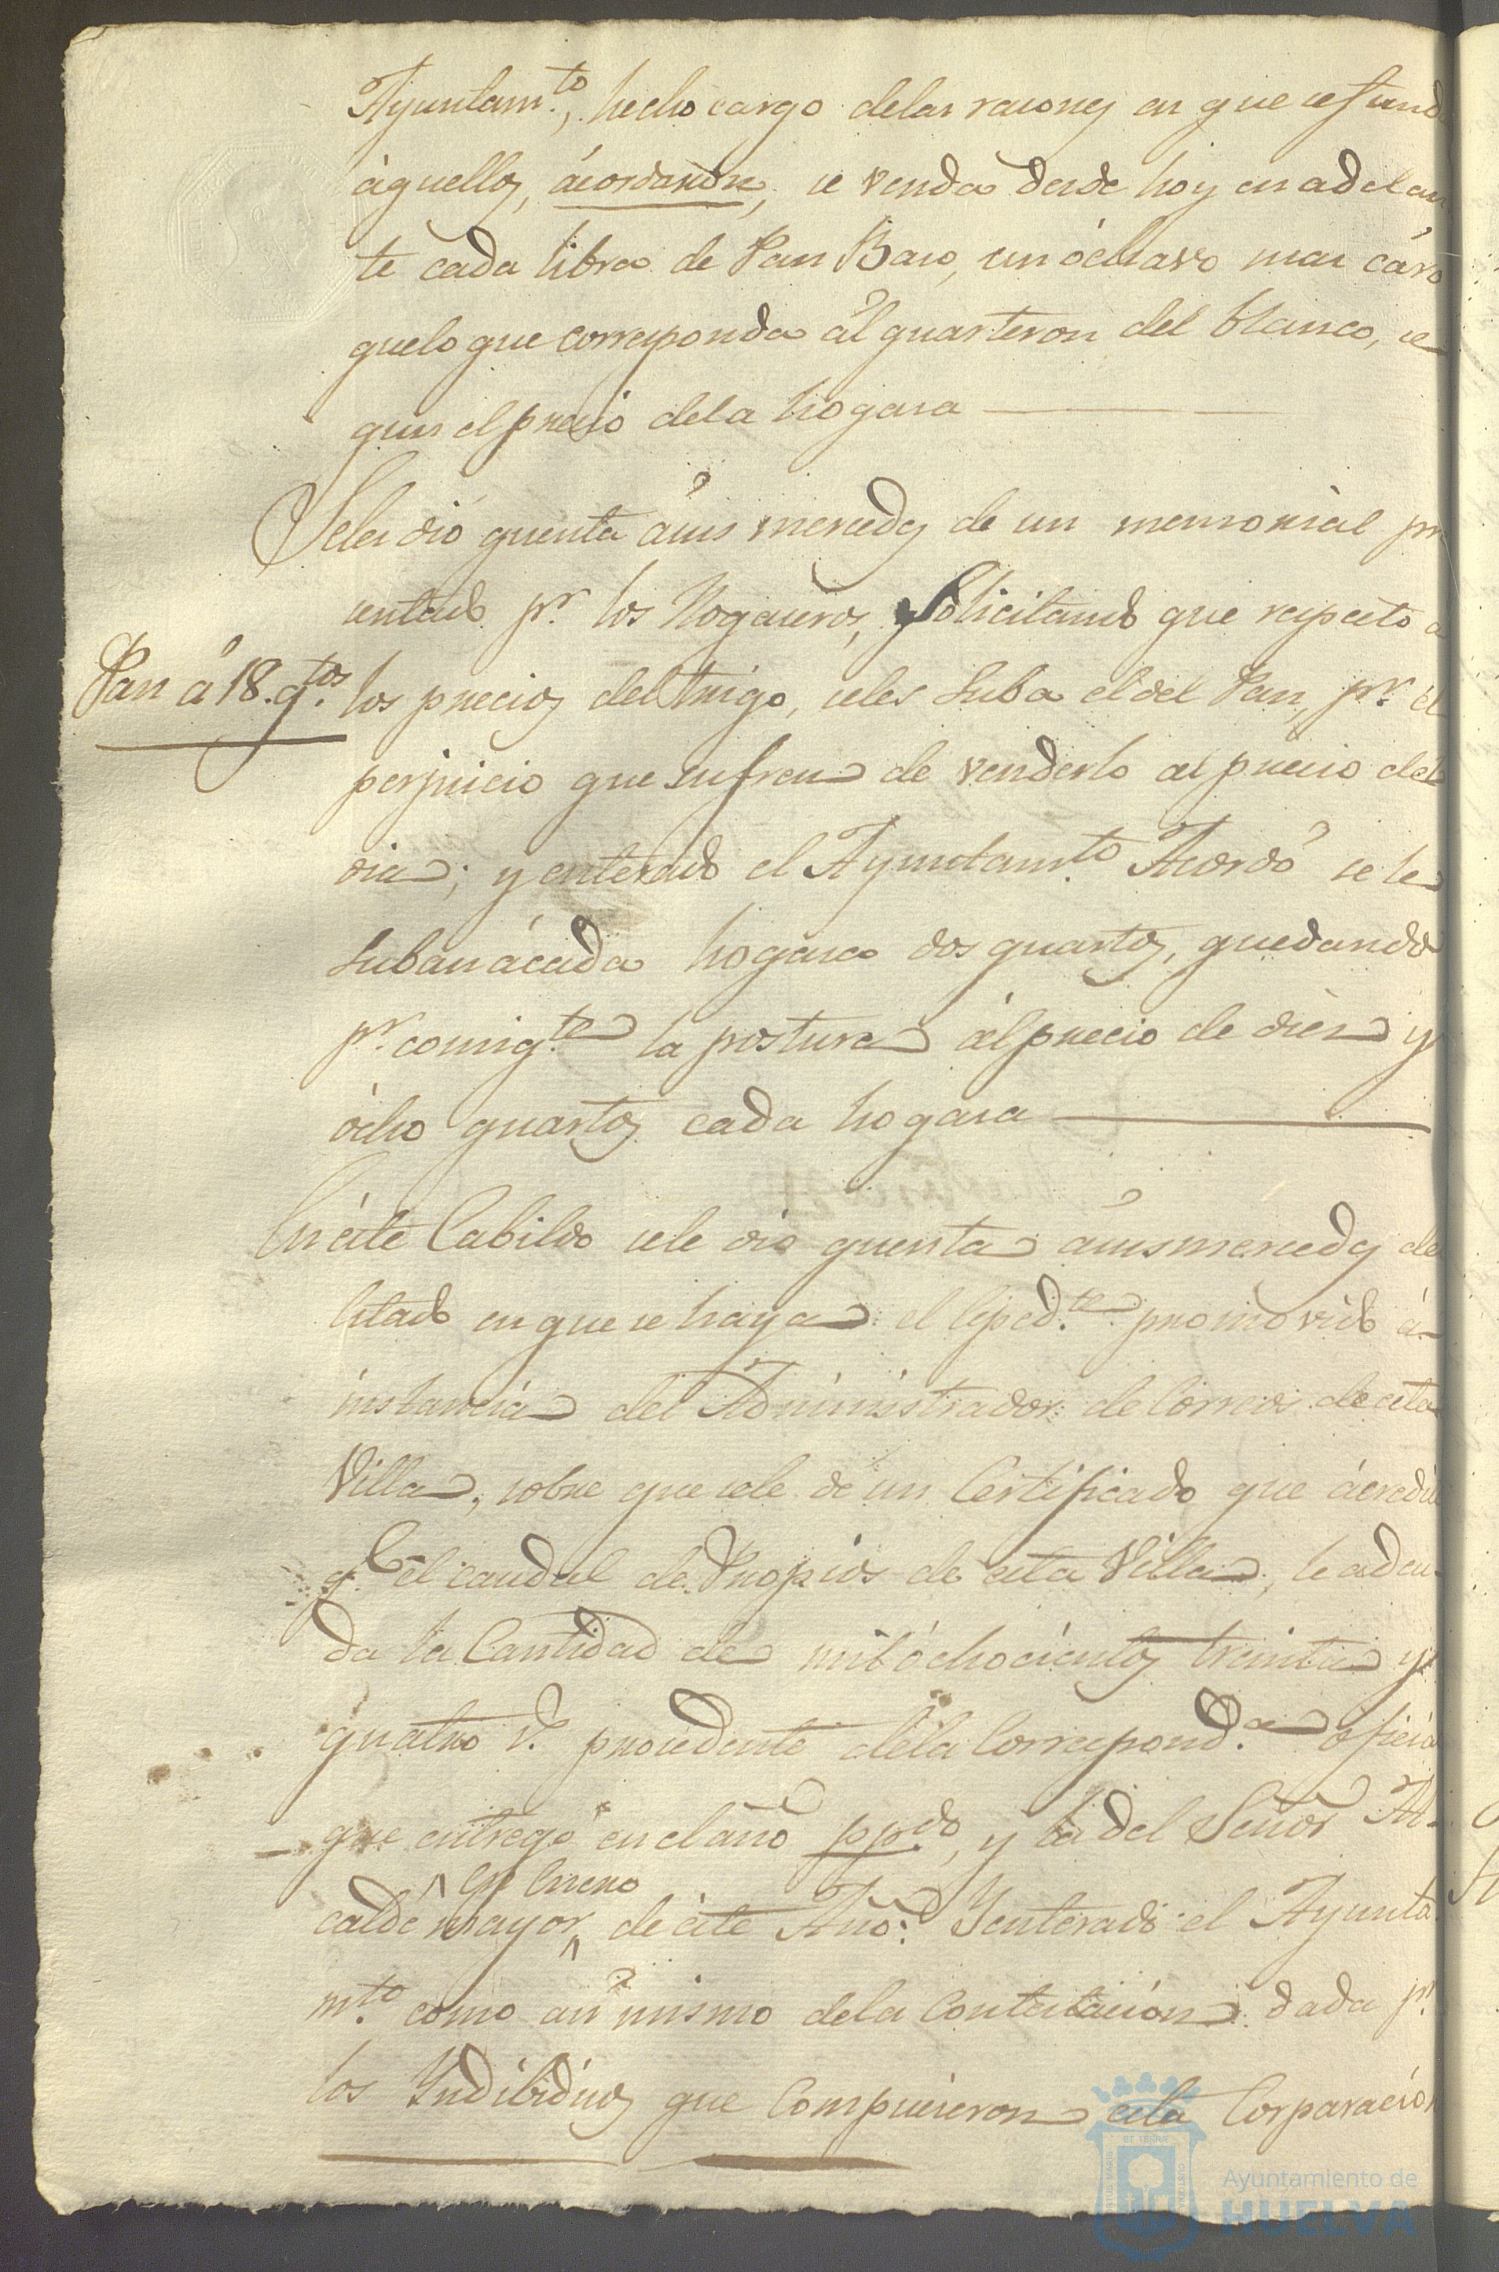 Ayuntam.to, hecho cargo delas raiones en que se fund
aquellos, ácordaron, se venda desde hoy en adelan
te cada libra de Pan Baso, un óchavo mas cáro
quelo que corresponda ál quarteron del blanco, se
gun el precio dela hogasa
Seles dió quenta ásus mercedes de un memorial pre
sentado p.r los Hogaseros, Solicitando que respecto a
Pan á 18. q.tos
los precios del trigo, seles Suba el del Pan, p.r el
perjuicio que sufren de venderlo al precio del
dia; y enterado el Ayuntam.to Acordó se le
Suban ácada hogasa dos quartos, quedando
p.r consig.te la postura ál precio de diez y
ócho quartos cada hogasa
En éste Cabildo sele dio quenta ásus mercedes del
estado en que se haya el Exped.te promovido á
instancia del Administrador de Correos de esta
Villa, sobre que sele dé un Certificado que ácredite
q.e él caudal de Propios de esta Villa, le adeu
da la Cantidad de mil óchocientos treinta y
quatro r.s procedente dela Correspond.a oficial
que entregó en el año pp.do, y la del Señor Al-
en Enero
calde mayor, de éste Año: Yenterado el Ayunta
m.to como así mismo dela Contestación dada p.r
los Yndibiduos que Compusieron esta Corparación
Ayuntamiento de
HUELVA